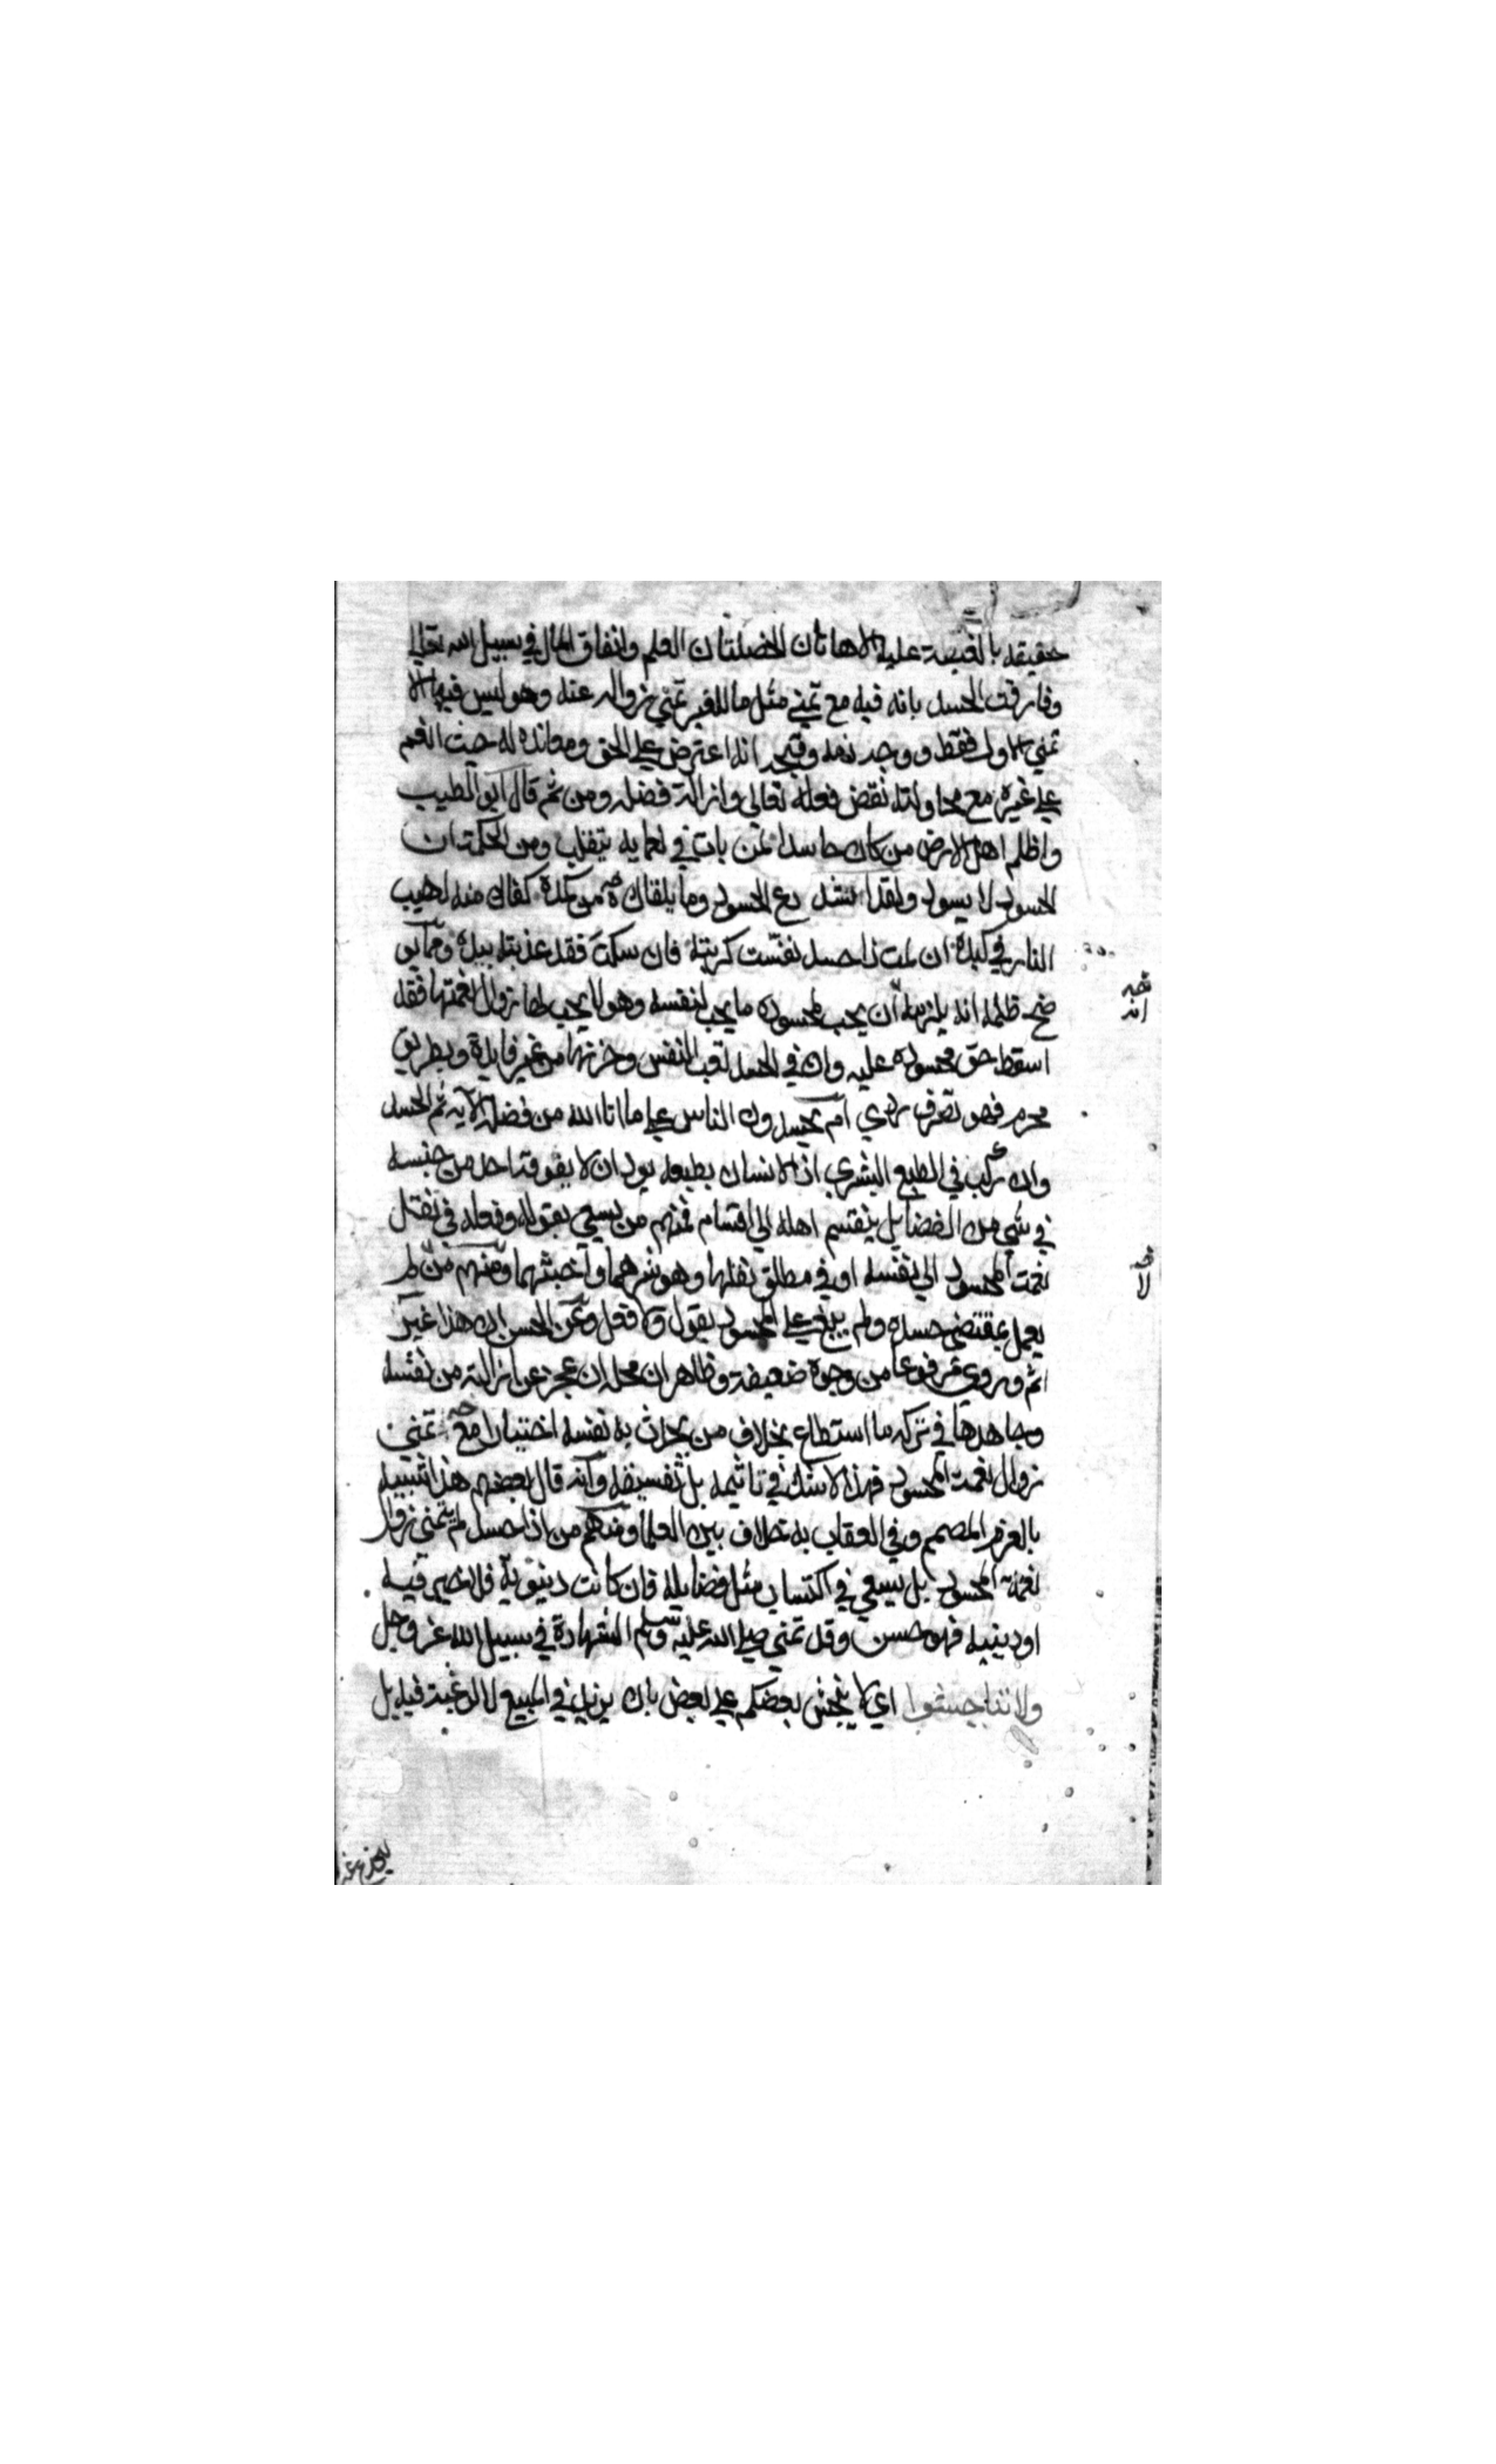 حقيقه بالغبطة عليه الا هاتان الخصلتان العلم وانفاق المال في سبيل الله تعالى
وفارقت الحسد بانه فيه مع تمني مثل ما للغير تمني زواله عنه وهو ليس فيها الا
تمني الاول فقط ووجه ذمه وقبحه انه اعتراض على الحق ومعانده له حيث انعم
على غيره مع محاولته نقض فعله تعالى وازالة فضله ومن ثم قال ابو الطيب
واظلم اهل الارض من كان حاسدا لمن بات في نعمايه يتقلب ومن الحكمة ان
الحسود لا يسود ولقد انشد دع الحسود وما يلقاك من كمده كفاك منه لهيب
النار في كبده ان لمت ذا حسد نفست كربته فان سكت فقد عذبته بيده ومما يو
ضح ظلمه انه يلزمه ان يحب لمحسوده ما يحب لنفسه وهو لا يحب لها زوال نعمتها فقد
اسقط حق محسوده عليه وان في الحسد تعب النفس وحزنها من غير فايدة وبطريق
محرم فهو تصرف ردي ام يحسدون الناس على ما اتاهم الله من فضله الآية ثم الحسد
وان ركب في الطبع البشري اذ الانسان بطبعه يود ان لا يفوقه احد من جنسه
في شي من الفضايل ينقسم اهله الى اقسام فمنهم من يسعي بقوله وفعله في نقل
نعمت المحسود الى نفسه او في مطلق نقلها وهو شرهما واخبثهما ومنهم من لم
يعمل بمقتضى حسده ولم يبغ على المحسود بقول ولا فعل وعن الحسن ان هذا غير
اثم وروي مرفوعا من وجوه ضعيفة وظاهر ان محله ان عجز عن ازالته من نفسه
وجاهدها في تركه ما استطاع بخلاف من يحدث به نفسه اختيارا مع تمني
زوال نعمت المحسود فهذا لا شك في تاثيمه بل تفسيقه وانه قال بعضهم هذا شبيه
بالعزم المصمم وفي العقاب به خلاف بين العلما ومنهم من اذا حسد لم يتمنى زوال
نعمة المحسود بل يسعى في اكتساب مثل فضايله فان كانت دنيوية فلا خير فيه
او دينيه فهو حسن وقد تمني صلى الله عليه وسلم الشهادة في سبيل الله عز وجل
ولا تناجشوا اي لا ينجش بعضكم على بعض بان يزيد في المبيع لا لرغبة فيه بل